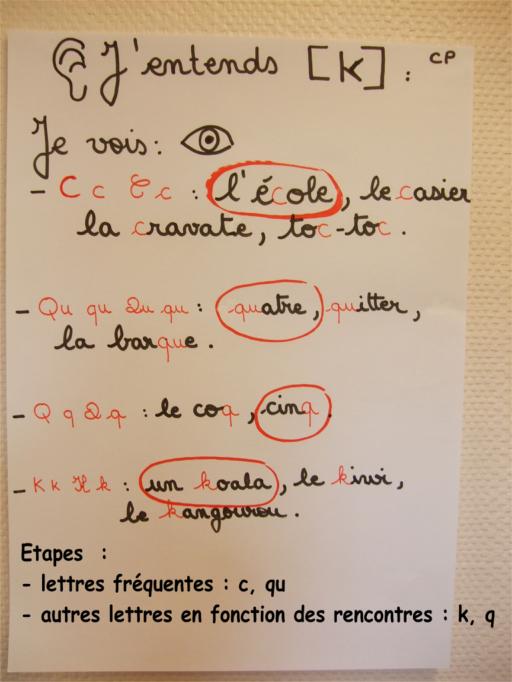 J'entends [k] : CP
Je vois :
- C c C c : l'école, le casier
la cravate, toc-toc .
- Qu qu Qu qu : quatre, quitter,
la barque .
- Q q Q q : le coq, cinq .
- K k K k : un koala, le kiwi,
le kangourou .
Etapes :
- lettres fréquentes : c, qu
- autres lettres en fonction des rencontres : k, q